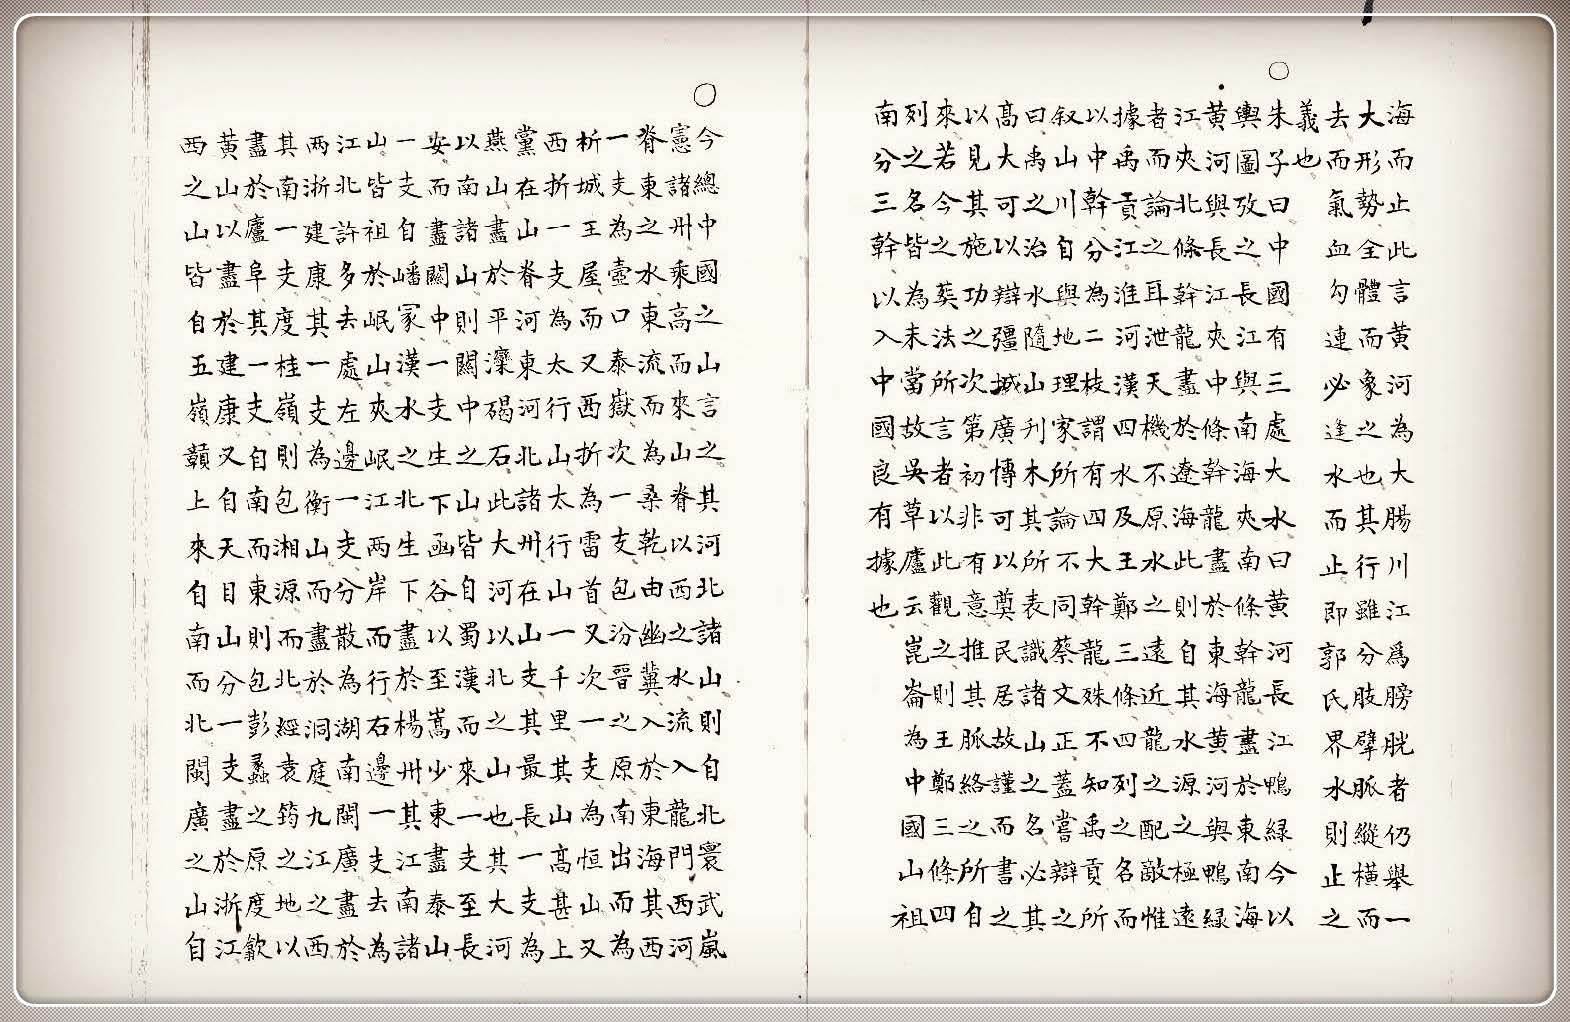 海而止此言黃河為大腸川江爲膀胱者仍舉一
大形勢全體而象之也其行雖分肢擘脈縱橫而
去而氣血勾連必逢水而止即郭氏界水則止之
義也
○朱子曰中國有三處大水曰黃河長江鴨綠今以
輿圖攷之長江與南海夾南條幹龍盡於東南海
黃河與長江夾中條幹龍盡於東海黃河與鴨綠
江夾北條幹龍盡於遼海此則自其水源之極遠
者而論之耳泄天機不原水之遠近龍之配敵惟
據禹貢江淮河漢四水及王鄭三條四列之名而
以中幹分為二枝謂有四大幹龍殊不知禹貢所
叙山川自與地理家所論不同蔡文正蓋嘗辯之
曰禹之治水隨山刋木其所表識諸山之名必其
高大可以辯疆域廣博可以奠民居故謹而書之
以見其施功之次第初非有意推其脈絡之所自
來若今之葬法所言者以此觀之則王鄭三條四
列之名皆為未當故吳草廬云崑崙為中國山祖
南分三幹以入中國良有據也
○今總中國之山言之其河北諸山則自北寰武嵐
憲諸州乘高而來山脊以西之水流入龍門西河
脊東之水東流而為桑乾由幽冀入於東海其西
一支為壺口泰嶽次一支包汾晉之原南出而為
析城王屋而又西折為雷首又次一支為恒山又
西折一支為太行山太行山一千里其山高甚上
黨在山脊河東河北諸州在山支其最長一支為
燕山盡於平灤碣石此大河以北之山也其大河
以南諸山則關中之山皆自蜀漢而來一支至長
安而盡關中一支生下函谷以至嵩少東盡泰山
一支自嶓冢漢水之北生下盡於楊州其江南諸
山皆祖於岷山夾岷江兩岸而行右邊一支去為
江北許多去處左邊一支分散為湖南閩廣盡於
兩浙建康其一支為衡山而盡於洞庭九江之西
其南一支度桂嶺則包湘源而北經袁筠之地以
盡於廬阜其一支自南而東則包彭蠡之原度歙
黃山以盡於建康又自天目山分一支盡於浙江
西之山皆自五嶺贛上來自南而北閩廣之山自